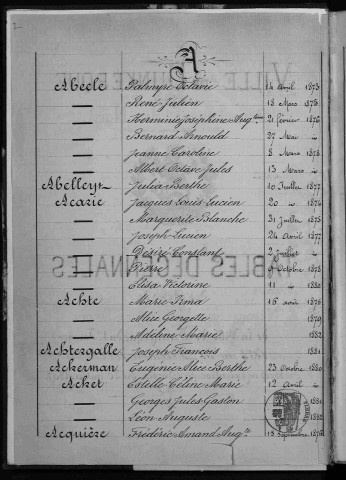 A
Abeele Palmyre Octavie 14 Avril 1873
— René Julien 18 Mars 1875
— Herminie Joséphine Aug.tine 21 février 1876
— Bernard Arnould 27 Mai
— Jeanne Caroline 8 Mars 1878
— Albert Octave Jules 13 Mars
Abelleyr Julia Berthe 10 Juillet 1877
Acarie Jacques Louis Lucien 20 1874
— Marguerite Blanche 31 Juillet 1875
— Joseph Lucien 24 Avril 1877
— Désiré Constant 2 Juillet
— Pierre Octobre 1878
— Elisa Victorine 11 1880
Achte Marie Irma 16 août 1876
— Alice Georgette 1879
— Adeline Marie 1882
Achtergalle Joseph François 1881
Ackerman Eugénie Alice Berthe 23 Octobre 1880
Acket Estelle Céline Marie 12 Avril
— Georges Jules Gaston 1881
— Léon Auguste
Acquière Frédéric Amand Aug.te 13 Septembre 1876